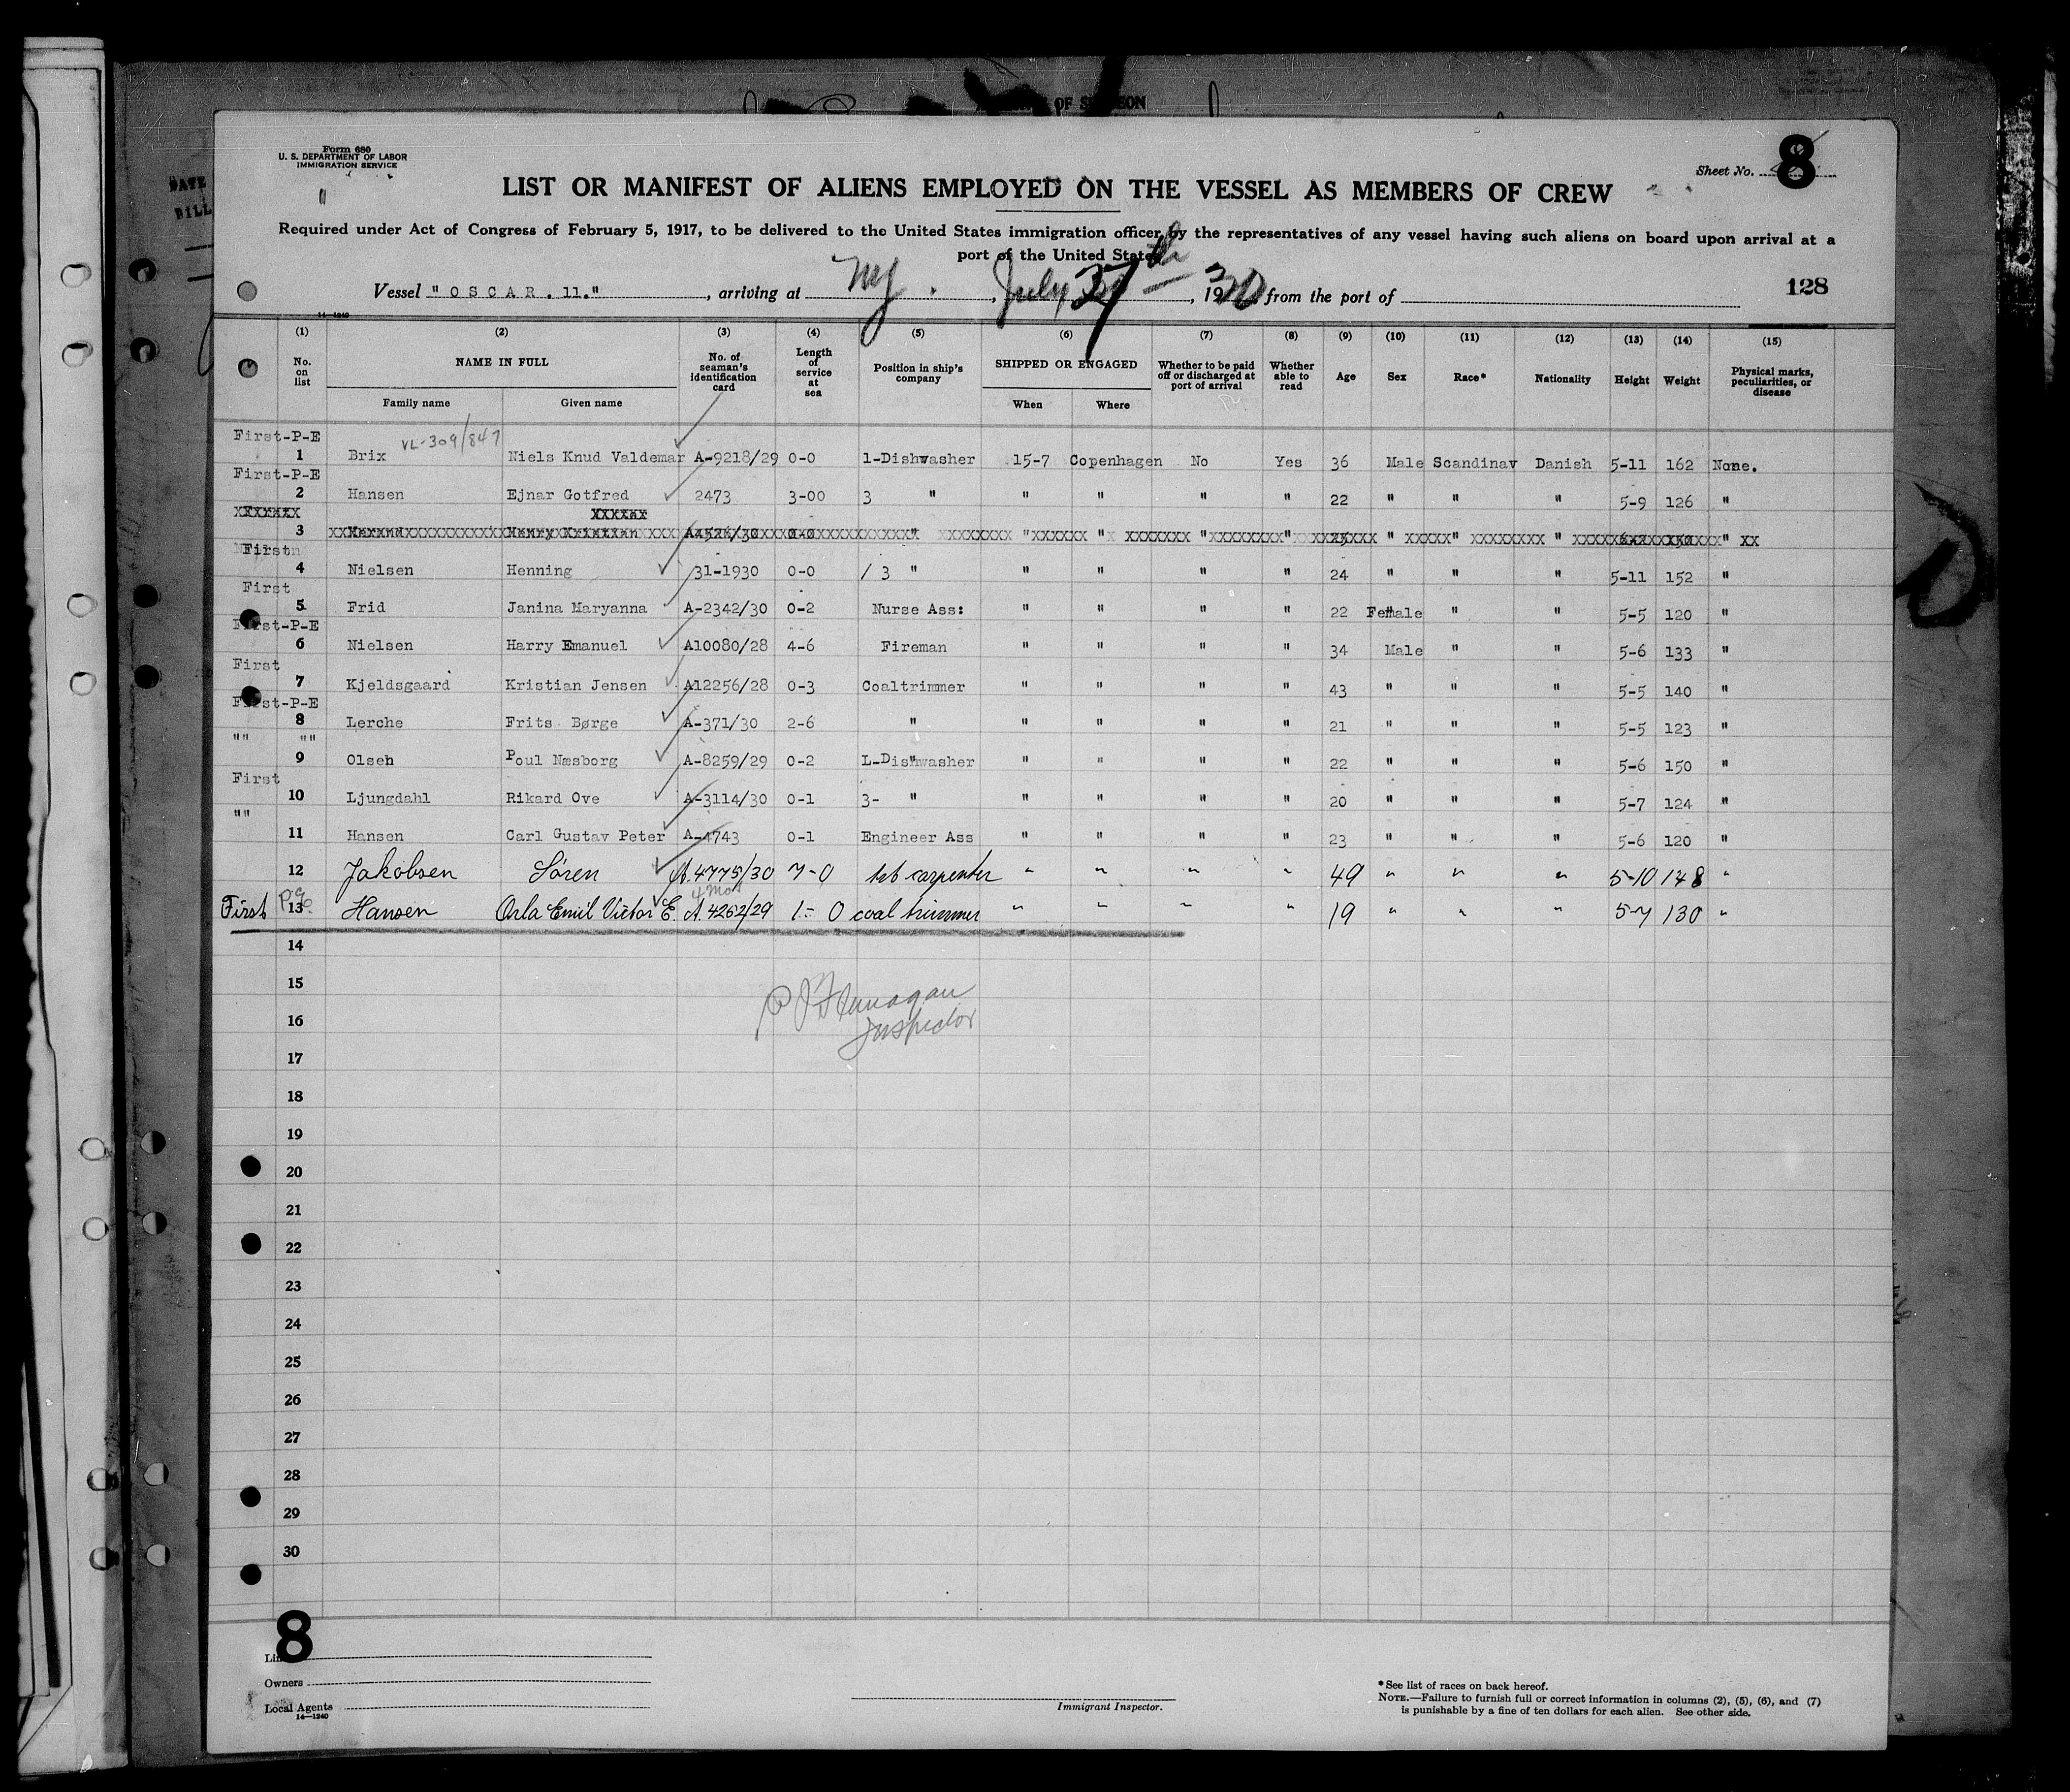 OF
Form 680
U. S. DEPARTMENT OF LABOR
IMMIGRATION SERVICE
Sheet No. 8
LIST OR MANIFEST OF ALIENS EMPLOYED ON THE VESSEL AS MEMBERS OF CREW
Required under Act of Congress of February 5, 1917, to be delivered to the United States immigration officer by the representatives of any vessel having such aliens on board upon arrival at a
port of the United States
Vessel "OSCAR. 11.", arriving at NY., July 27th, 1930 from the port of
128
14—1240
(1) (2) (3) (4) (5) (6) (7) (8) (9) (10) (11) (12) (13) (14) (15)
No. on list NAME IN FULL No. of seaman's identification card Length of service at sea Position in ship's company SHIPPED OR ENGAGED Whether to be paid off or discharged at port of arrival Whether able to read Age Sex Race* Nationality Height Weight Physical marks, peculiarities, or disease
Family name Given name When Where
First-P-E VL-309/847
1 Brix Niels Knud Valdemar A-9218/29 0-0 1-Dishwasher 15-7 Copenhagen No Yes 36 Male Scandinav Danish 5-11 162 None.
First-P-E
2 Hansen Ejnar Gotfred 2473 3-00 3 " " " " " 22 " " " 5-9 126 "
3 Henry Kristian A4526/30 0-0 " " " " " 25 " " " 150 "
First
4 Nielsen Henning 31-1930 0-0 / 3 " " " " " 24 " " " 5-11 152 "
First
5 Frid Janina Maryanna A-2342/30 0-2 Nurse Ass: " " " " 22 Female " " 5-5 120 "
First-P-E
6 Nielsen Harry Emanuel A10080/28 4-6 Fireman " " " " 34 Male " " 5-6 133 "
First
7 Kjeldsgaard Kristian Jensen A12256/28 0-3 Coaltrimmer " " " " 43 " " " 5-5 140 "
First-P-E
8 Lerche Frits Børge A-371/30 2-6 " " " " " 21 " " " 5-5 123 "
"" ""
9 Olsen Poul Næsborg A-8259/29 0-2 L-Dishwasher " " " " 22 " " " 5-6 150 "
First
10 Ljungdahl Rikard Ove A-3114/30 0-1 3- " " " " " 20 " " " 5-7 124 "
""
11 Hansen Carl Gustav Peter A-4743 0-1 Engineer Ass " " " " 23 " " " 5-6 120 "
12 Jakobsen Sören A.4775/30 7-0 1st carpenter " " " " 49 " " " 5-10 148 "
4 mos
First P.E. 13 Hansen Orla Emil Victor E. A.4262/29 1-0 coal trimmer " " " " 19 " " " 5-7 130 "
14
15
P J Flanagan
16
Inspector
17
18
19
20
21
22
23
24
25
26
27
28
29
30
8
Line
Owners
Local Agents
14—1240
Immigrant Inspector.
*See list of races on back hereof.
NOTE.—Failure to furnish full or correct information in columns (2), (5), (6), and (7)
is punishable by a fine of ten dollars for each alien. See other side.